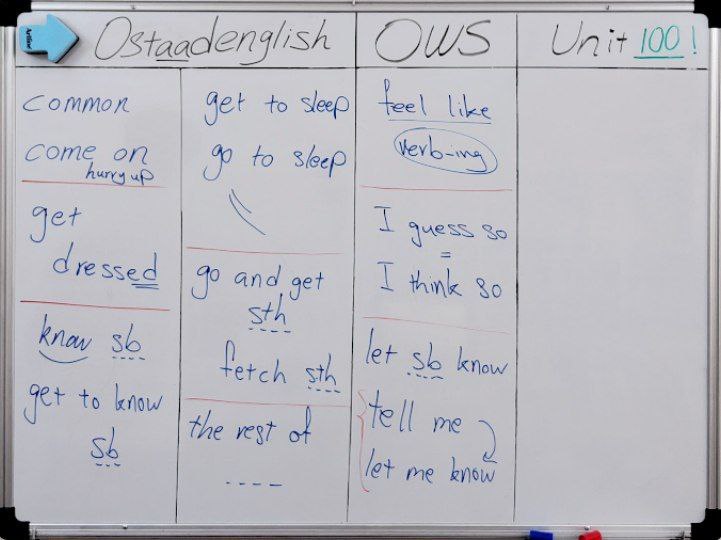 Artline
Ostaadenglish
OWS
Unit 100!
common
come on
hurry up
get
dressed
know sb
get to know
sb
get to sleep
go to sleep
go and get
sth
fetch sth
the rest of
feel like
verb-ing
I guess so
=
I think so
let sb know
tell me
let me know